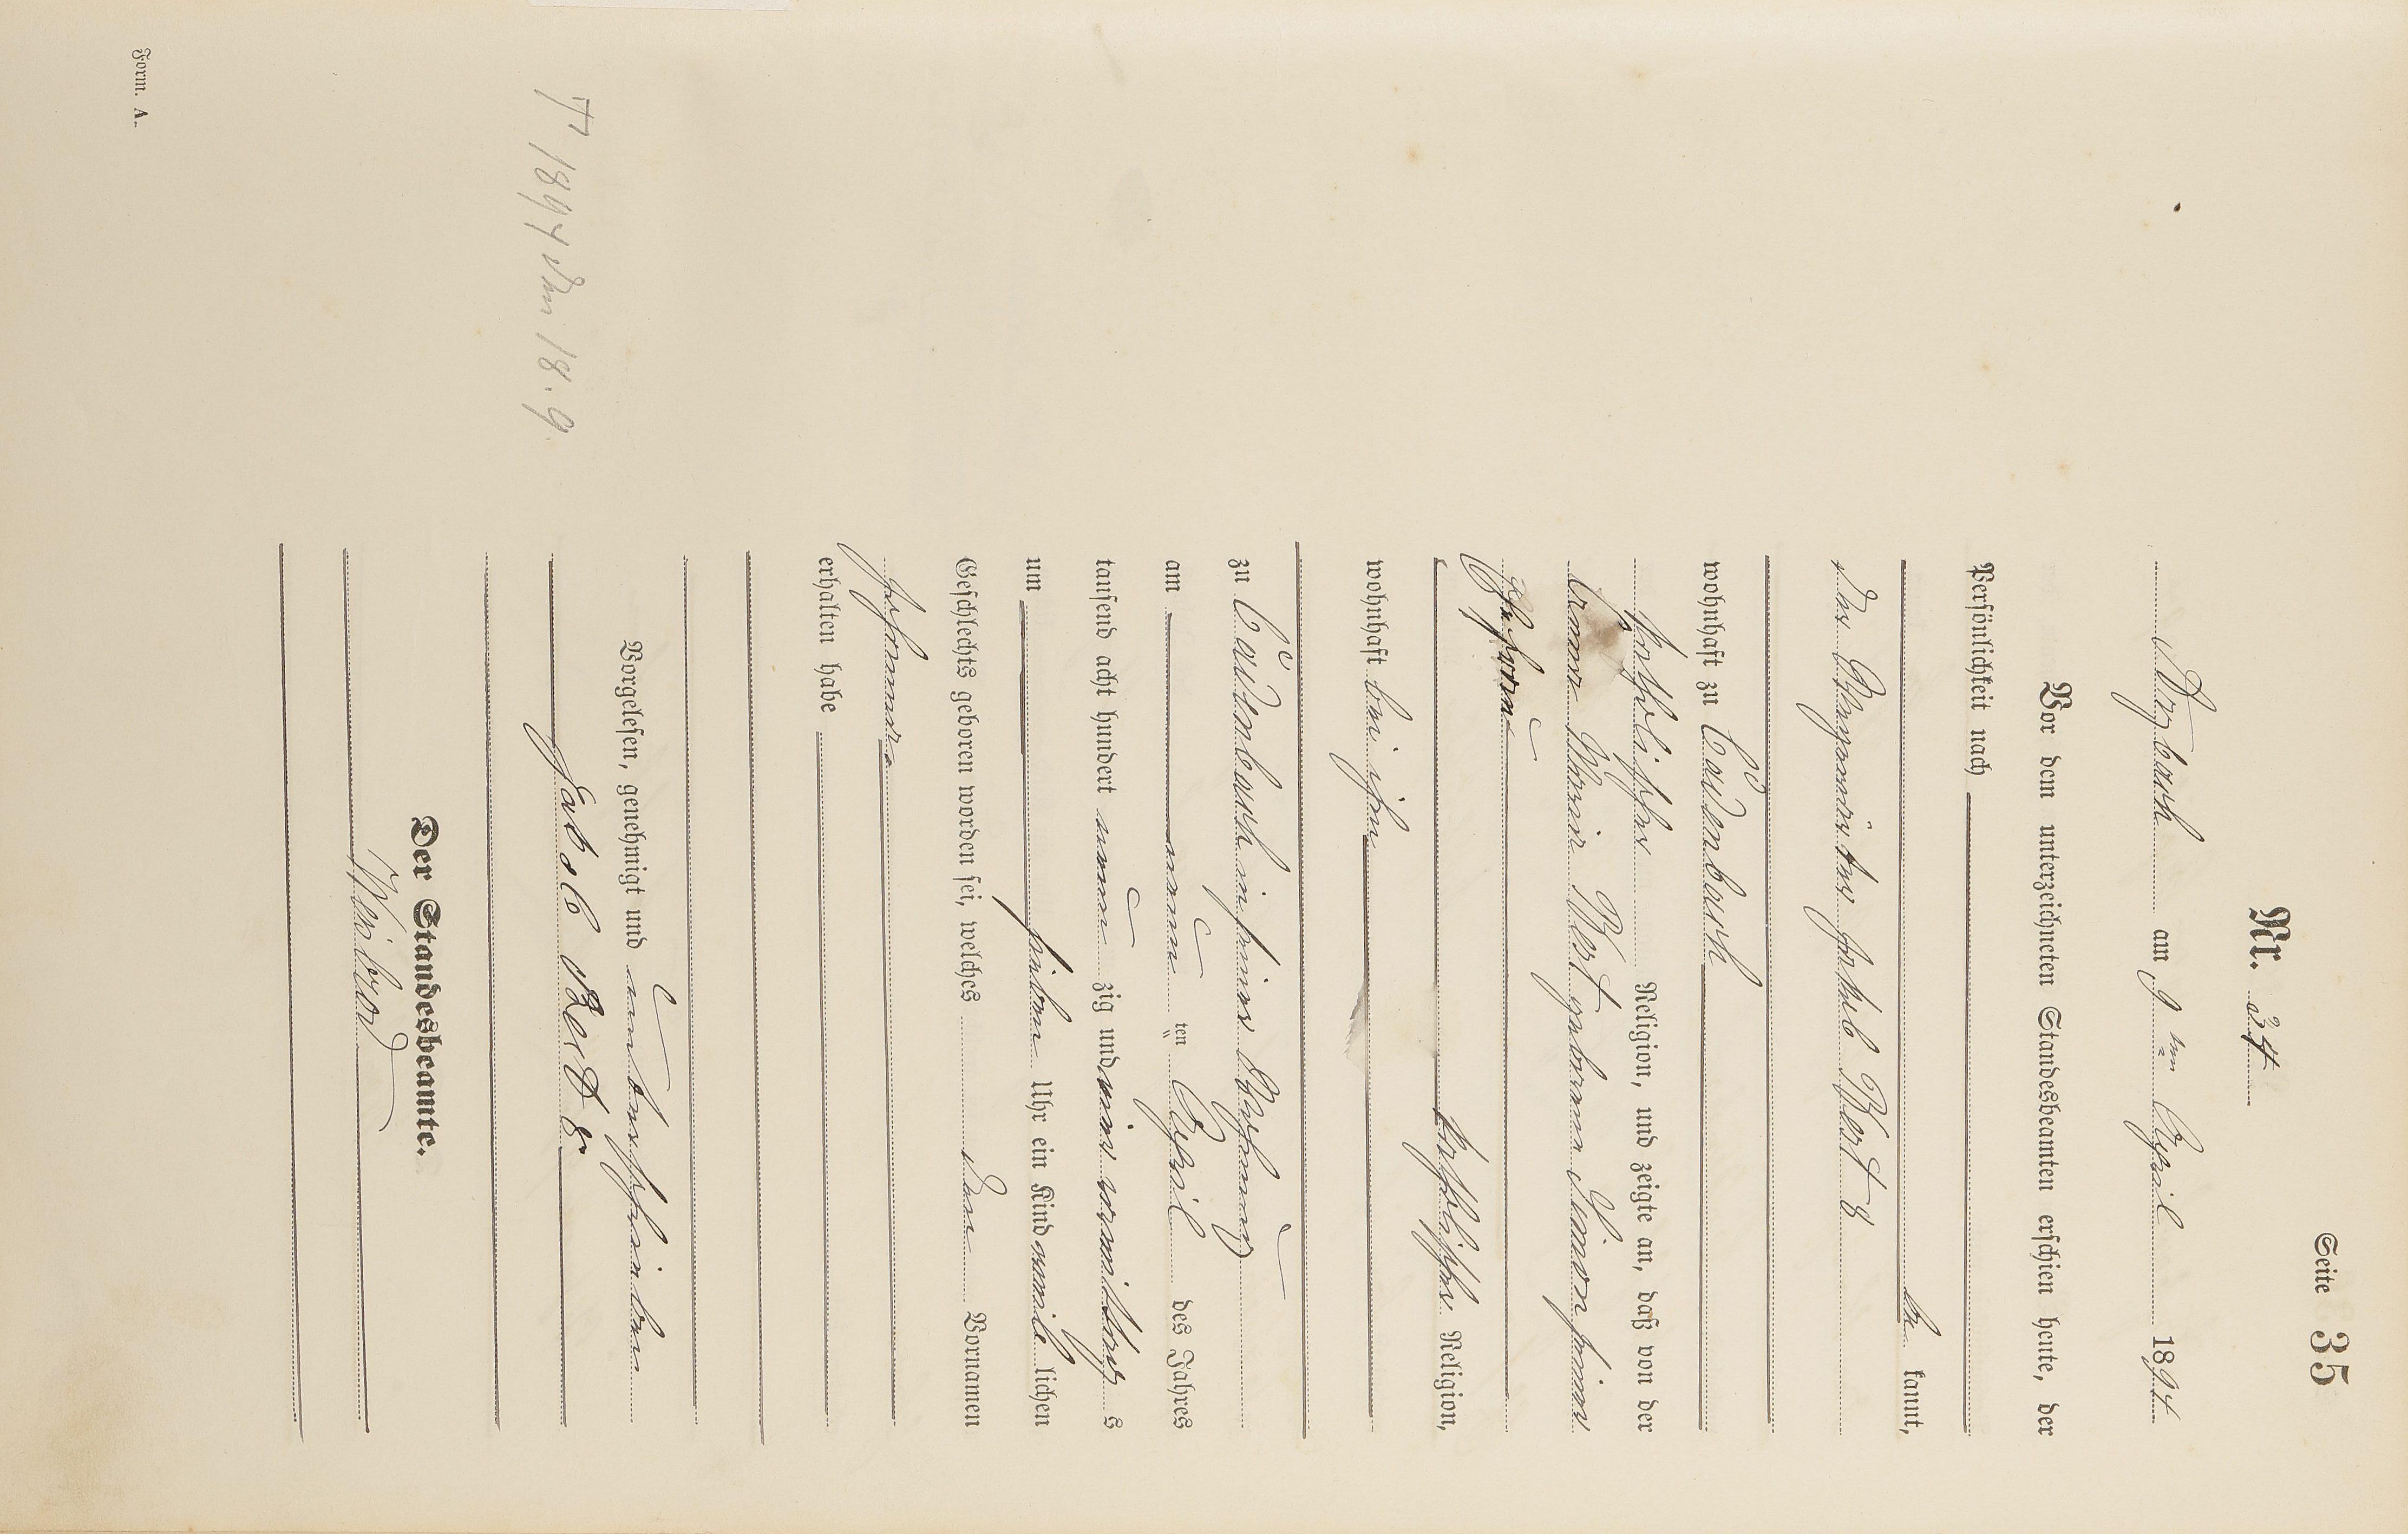 Seite 35
Nr. 34
Arzbach am 9ten April 1894
Vor dem unterzeichneten Standesbeamten erschien heute, der
Persönlichkeit nach
be kannt,
der Bergmann Jakob Bert 8
wohnhaft zu Cadenbach
katholischer Religion, und zeigte an, daß von der
Anna Maria Bert geborenen Simon seiner
Ehefrau
katholischer Religion,
wohnhaft bei ihm
zu Cadenbach in seiner Wohnung
am neun ten April des Jahres
tausend acht hundert neun zig und vier vormittags
um sieben Uhr ein Kind weib lichen
Geschlechts geboren worden sei, welches den Vornamen
Johanna
erhalten habe
Vorgelesen, genehmigt und unterschrieben
Jakob Bert 8.
Der Standesbeamte.
† 1894 den 18. 9.
Form. A.